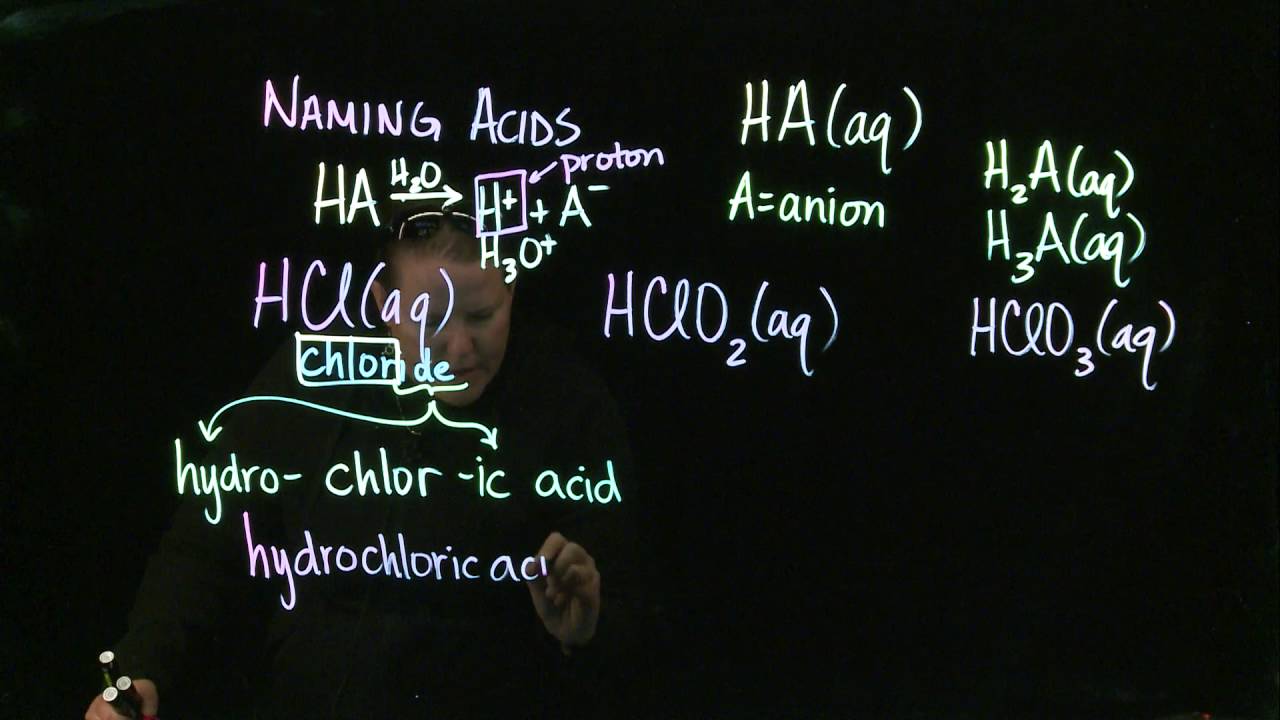 NAMING ACIDS
HA H₂O → H⁺ + A⁻
proton
H₃O⁺
HA(aq)
A=anion
H₂A(aq)
H₃A(aq)
HCl(aq)
chloride
hydro- chlor -ic acid
hydrochloric aci
HClO₂(aq)
HClO₃(aq)